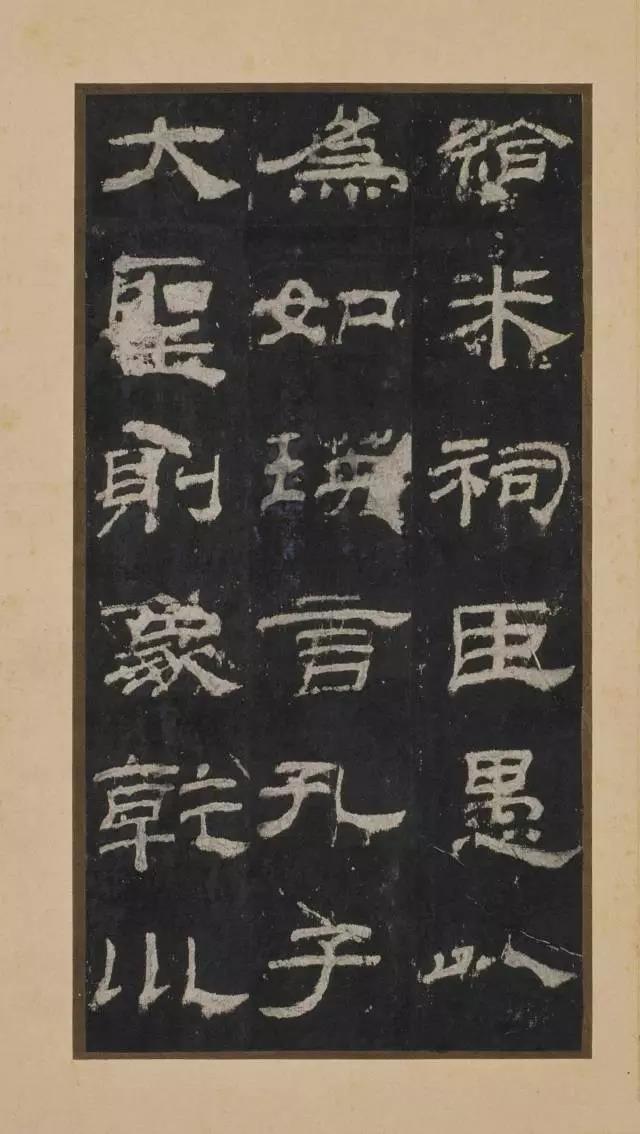 給米祠臣愚以
為如瑛言孔子
大聖則象乾川